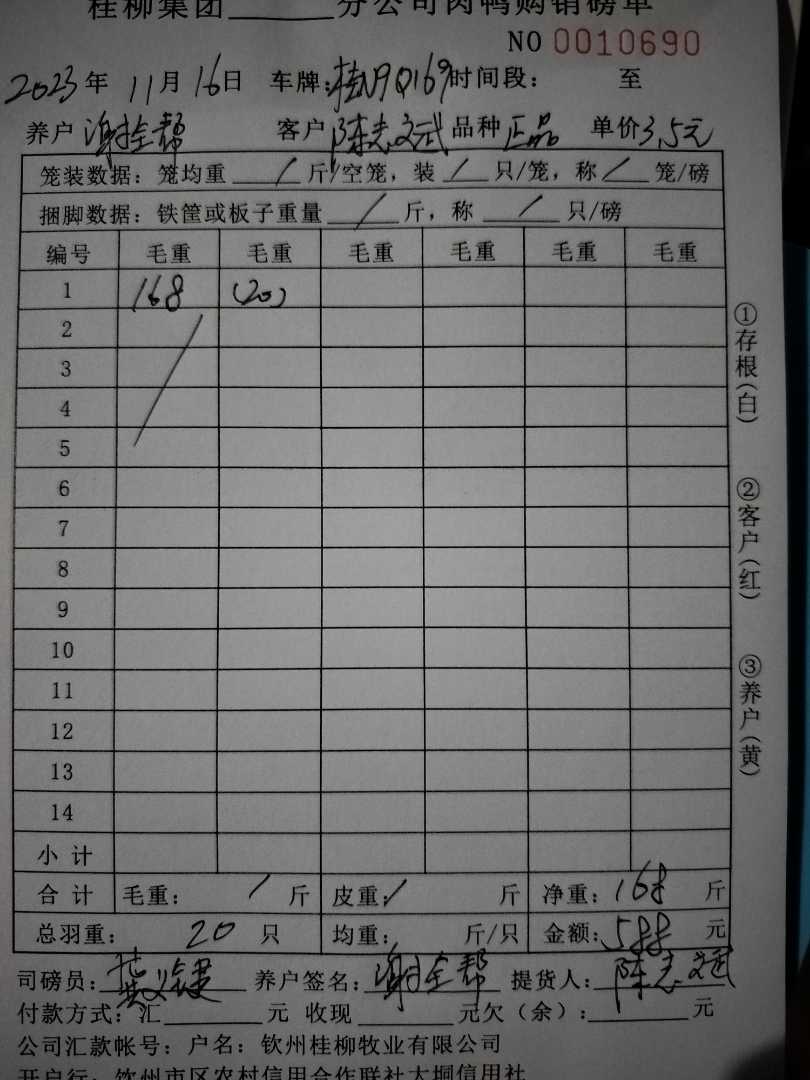 桂柳集团______分公司肉鸭购销磅单
NO 0010690
2023年 11月16日 车牌:桂N9Q169 时间段: 至
养户 谢全帮 客户 陈志文武 品种 正品 单价3.5元
笼装数据:笼均重 / 斤/空笼,装 / 只/笼,称 / 笼/磅
捆脚数据:铁筐或板子重量 / 斤,称 / 只/磅
编号 毛重 毛重 毛重 毛重 毛重 毛重
1 168 (20)
2
3
4
5
6
7
8
9
10
11
12
13
14
小计
合计 毛重: / 斤 皮重: / 斤 净重:168 斤
总羽重: 20 只 均重: 斤/只 金额:588 元
司磅员: 养户签名:谢全帮 提货人:陈志文武
付款方式:汇______元 收现______元欠(余):______元
公司汇款帐号:户名:钦州桂柳牧业有限公司
开户行:钦州市区农村信用合作联社大垌信用社
①存根(白)
②客户(红)
③养户(黄)